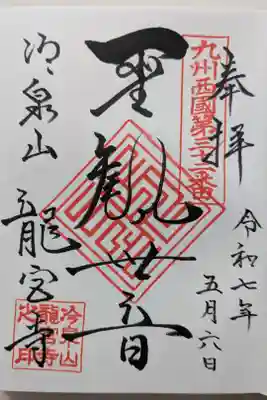 奉拝
九州西國第三十二番
令和七年
五月六日
聖観世音
冷泉山
龍宮寺
冷泉山
龍宮寺
之印